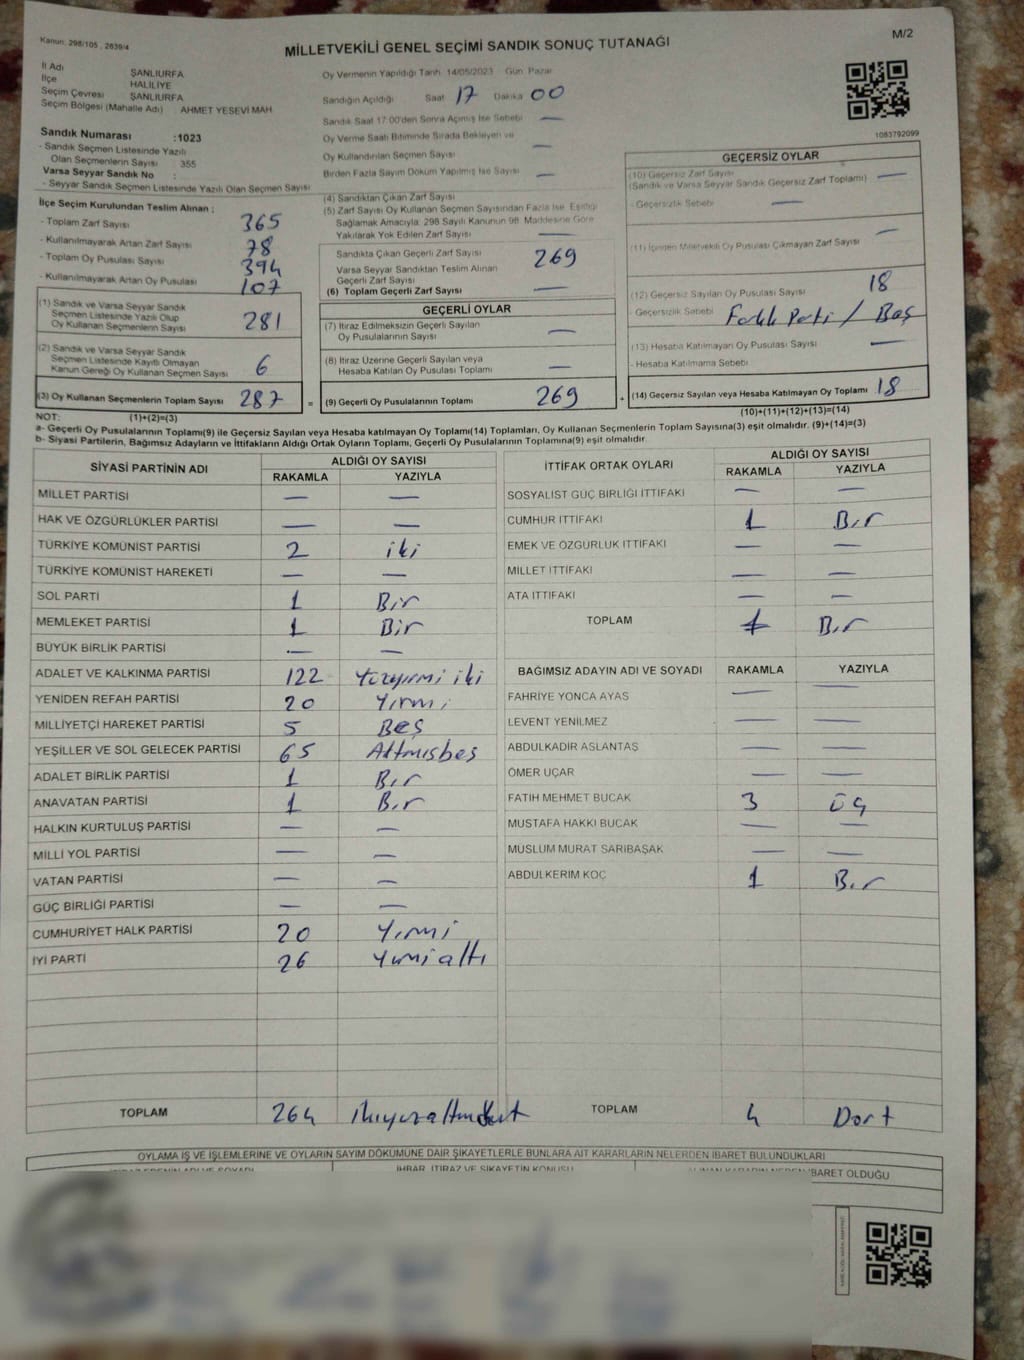 Kanun: 298/105, 2839/4
MİLLETVEKİLİ GENEL SEÇİMİ SANDIK SONUÇ TUTANAĞI
M/2
İl Adı ŞANLIURFA
İlçe HALİLİYE
Seçim Çevresi ŞANLIURFA
Seçim Bölgesi (Mahalle Adı) : AHMET YESEVİ MAH
Sandık Numarası :1023
- Sandık Seçmen Listesinde Yazılı
Olan Seçmenlerin Sayısı 355
Varsa Seyyar Sandık No :
- Seyyar Sandık Seçmen Listesinde Yazılı Olan Seçmen Sayısı
Oy Vermenin Yapıldığı Tarih 14/05/2023 Gün Pazar
Sandığın Açıldığı Saat 17 Dakika 00
Sandık Saat 17:00'den Sonra Açılmış İse Sebebi —
Oy Verme Saati Bitiminde Sırada Bekleyen ve
Oy Kullandırılan Seçmen Sayısı —
Birden Fazla Sayım Döküm Yapılmış İse Sayısı —
1083792099
İlçe Seçim Kurulundan Teslim Alınan :
- Toplam Zarf Sayısı 365
- Kullanılmayarak Artan Zarf Sayısı 78
- Toplam Oy Pusulası Sayısı 394
- Kullanılmayarak Artan Oy Pusulası 107
(1) Sandık ve Varsa Seyyar Sandık
Seçmen Listesinde Yazılı Olup
Oy Kullanan Seçmenlerin Sayısı 281
(2) Sandık ve Varsa Seyyar Sandık
Seçmen Listesinde Kayıtlı Olmayan
Kanun Gereği Oy Kullanan Seçmen Sayısı 6
(3) Oy Kullanan Seçmenlerin Toplam Sayısı 287
(4) Sandıktan Çıkan Zarf Sayısı
(5) Zarf Sayısı Oy Kullanan Seçmen Sayısından Fazla İse, Eşitliği
Sağlamak Amacıyla; 298 Sayılı Kanunun 98. Maddesine Göre
Yakılarak Yok Edilen Zarf Sayısı —
Sandıkta Çıkan Geçerli Zarf Sayısı 269
Varsa Seyyar Sandıktan Teslim Alınan
Geçerli Zarf Sayısı
(6) Toplam Geçerli Zarf Sayısı —
GEÇERLİ OYLAR
(7) İtiraz Edilmeksizin Geçerli Sayılan
Oy Pusulalarının Sayısı —
(8) İtiraz Üzerine Geçerli Sayılan veya
Hesaba Katılan Oy Pusulası Toplamı —
= (9) Geçerli Oy Pusulalarının Toplamı 269 +
GEÇERSİZ OYLAR
(10) Geçersiz Zarf Sayısı —
(Sandık ve Varsa Seyyar Sandık Geçersiz Zarf Toplamı)
- Geçersizlik Sebebi —
(11) İçinden Milletvekili Oy Pusulası Çıkmayan Zarf Sayısı —
(12) Geçersiz Sayılan Oy Pusulası Sayısı 18
- Geçersizlik Sebebi Farklı Parti / Boş
(13) Hesaba Katılmayan Oy Pusulası Sayısı —
- Hesaba Katılmama Sebebi
(14) Geçersiz Sayılan veya Hesaba Katılmayan Oy Toplamı 18
NOT: (1)+(2)=(3) (10)+(11)+(12)+(13)=(14)
a- Geçerli Oy Pusulalarının Toplamı(9) ile Geçersiz Sayılan veya Hesaba katılmayan Oy Toplamı(14) Toplamları, Oy Kullanan Seçmenlerin Toplam Sayısına(3) eşit olmalıdır. (9)+(14)=(3)
b- Siyasi Partilerin, Bağımsız Adayların ve İttifakların Aldığı Ortak Oyların Toplamı, Geçerli Oy Pusulalarının Toplamına(9) eşit olmalıdır.
SİYASİ PARTİNİN ADI ALDIĞI OY SAYISI
RAKAMLA YAZIYLA
MİLLET PARTİSİ — —
HAK VE ÖZGÜRLÜKLER PARTİSİ — —
TÜRKİYE KOMÜNİST PARTİSİ 2 iki
TÜRKİYE KOMÜNİST HAREKETİ — —
SOL PARTİ 1 Bir
MEMLEKET PARTİSİ 1 Bir
BÜYÜK BİRLİK PARTİSİ — —
ADALET VE KALKINMA PARTİSİ 122 Yüzyirmi iki
YENİDEN REFAH PARTİSİ 20 Yirmi
MİLLİYETÇİ HAREKET PARTİSİ 5 Beş
YEŞİLLER VE SOL GELECEK PARTİSİ 65 Altmışbeş
ADALET BİRLİK PARTİSİ 1 Bir
ANAVATAN PARTİSİ 1 Bir
HALKIN KURTULUŞ PARTİSİ — —
MİLLİ YOL PARTİSİ — —
VATAN PARTİSİ — —
GÜÇ BİRLİĞİ PARTİSİ — —
CUMHURİYET HALK PARTİSİ 20 Yirmi
İYİ PARTİ 26 Yirmialtı
TOPLAM 264 ikiyüzaltmışdört
İTTİFAK ORTAK OYLARI ALDIĞI OY SAYISI
RAKAMLA YAZIYLA
SOSYALİST GÜÇ BİRLİĞİ İTTİFAKI — —
CUMHUR İTTİFAKI 1 Bir
EMEK VE ÖZGÜRLÜK İTTİFAKI — —
MİLLET İTTİFAKI — —
ATA İTTİFAKI — —
TOPLAM 1 Bir
BAĞIMSIZ ADAYIN ADI VE SOYADI RAKAMLA YAZIYLA
FAHRİYE YONCA AYAS — —
LEVENT YENİLMEZ — —
ABDULKADİR ASLANTAŞ — —
ÖMER UÇAR — —
FATİH MEHMET BUCAK 3 üç
MUSTAFA HAKKI BUCAK — —
MUSLUM MURAT SARIBAŞAK — —
ABDULKERİM KOÇ 1 Bir
TOPLAM 4 Dört
OYLAMA İŞ VE İŞLEMLERİNE VE OYLARIN SAYIM DÖKÜMÜNE DAİR ŞİKAYETLERLE BUNLARA AİT KARARLARIN NELERDEN İBARET BULUNDUKLARI
İHBAR, İTİRAZ VE ŞİKAYETİN KONUSU
ALINAN KARARIN NEDEN İBARET OLDUĞU